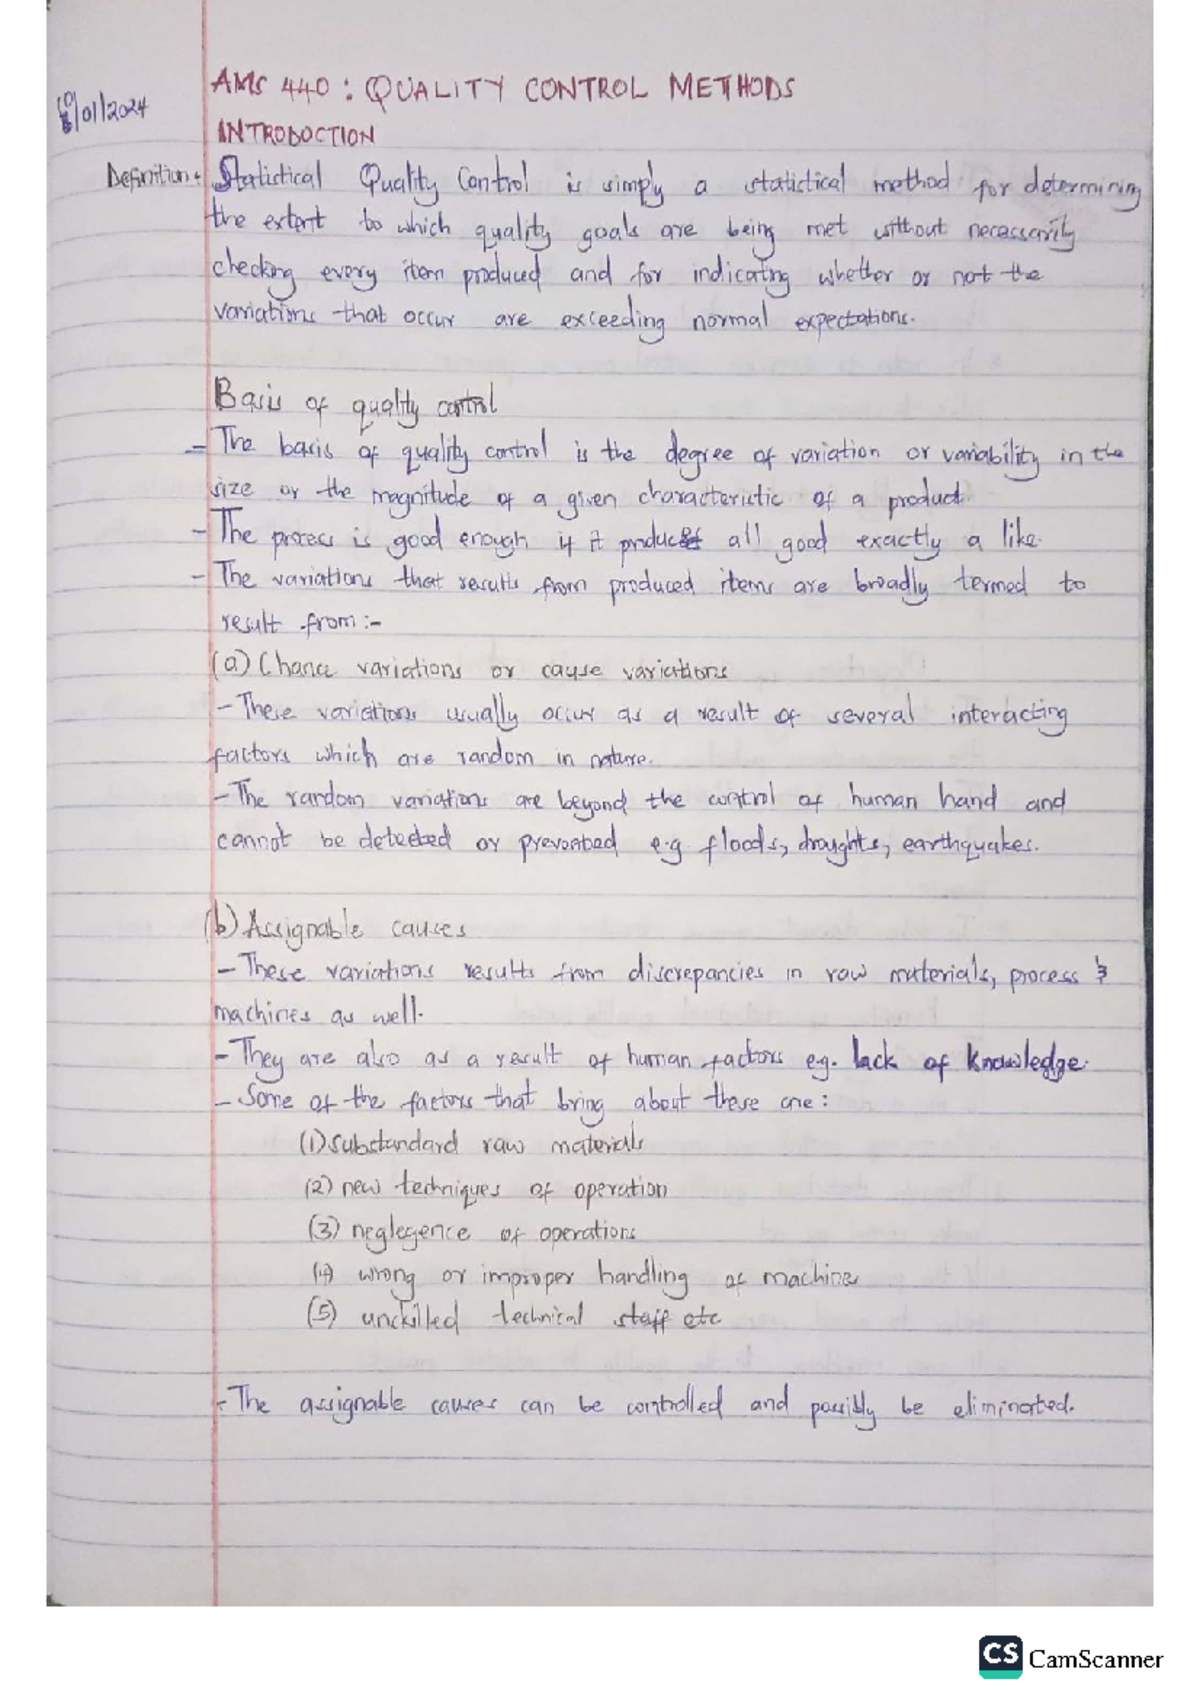 AMS 440 : QUALITY CONTROL METHODS
/01/2024
INTRODUCTION
Definition: Statistical Quality Control is simply a statistical method for determining
the extent to which quality goals are being met without necessarily
checking every item produced and for indicating whether or not the
variations that occur are exceeding normal expectations.
Basis of quality control
- The basis of quality control is the degree of variation or variability in the
size or the magnitude of a given characteristic of a product.
- The process is good enough if it produces all good exactly a like.
- The variations that results from produced items are broadly termed to
result from :-
(a) Chance variations or cause variations
- These variations usually occur as a result of several interacting
factors which are random in nature.
- The random variations are beyond the control of human hand and
cannot be detected or prevented e.g. floods, draughts, earthquakes.
(b) Assignable causes
- These variations results from discrepancies in raw materials, process &
machines as well.
- They are also as a result of human factors eg. lack of knowledge.
- Some of the factors that bring about these are :
(1) substandard raw materials
(2) new techniques of operation
(3) neglegence of operations
(4) wrong or improper handling of machine
(5) unskilled technical staff etc
- The assignable causes can be controlled and possibly be eliminated.
CS CamScanner